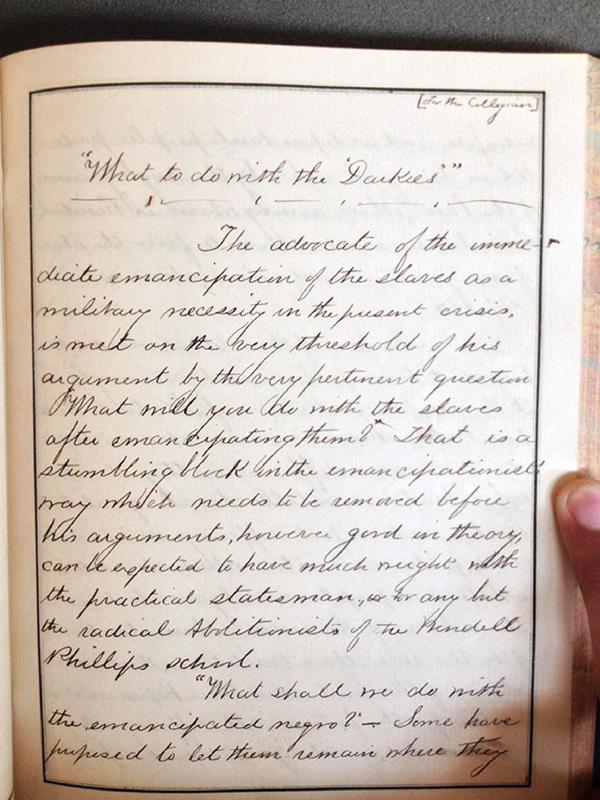 [For the Collegian]
"What to do with the 'Darkies'"
The advocate of the imme-
diate emancipation of the slaves as a
military necessity in the present crisis,
is met on the very threshold of his
argument by the very pertinent question
"What will you do with the slaves
after emancipating them?" That is a
stumbling block in the emancipationist's
way which needs to be removed before
his arguments, however good in theory,
can be expected to have much weight with
the practical statesman, or for any but
the radical Abolitionists of the Wendell
Phillips school.
"What shall we do with
the emancipated negro?" — Some have
proposed to let them remain where they